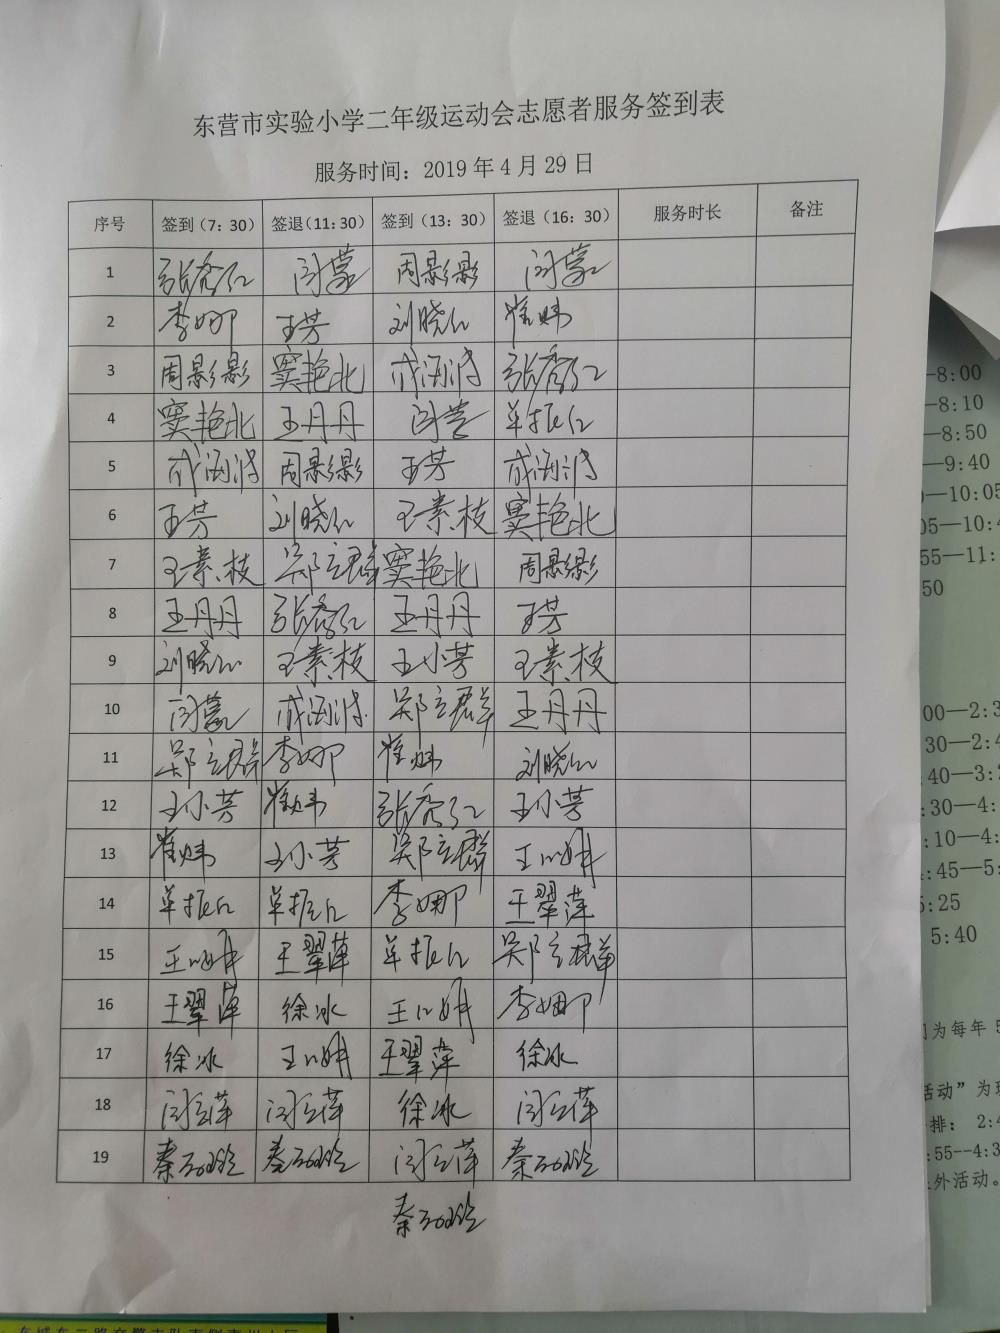 东营市实验小学二年级运动会志愿者服务签到表
服务时间：2019年4月29日
序号 签到（7：30） 签退（11：30） 签到（13：30） 签退（16：30） 服务时长 备注
1 张秀红 闫蒙 周影影 闫蒙
2 李娜 王芳 刘晓红 崔炜
3 周影影 窦艳北 成海波 张秀红
4 窦艳北 王丹丹 闫蒙 单振红
5 成海波 周影影 王芳 成海波
6 王芳 刘晓红 王素枝 窦艳北
7 王素枝 郑立群 窦艳北 周影影
8 王丹丹 张秀红 王丹丹 王芳
9 刘晓红 王素枝 王小芳 王素枝
10 闫蒙 成海波 郑立群 王丹丹
11 郑立群 李娜 崔炜 刘晓红
12 王小芳 崔炜 张秀红 王小芳
13 崔炜 王小芳 郑立群 王
14 单振红 单振红 李娜 王翠萍
15 王 王翠萍 单振红 郑立群
16 王翠萍 徐冰 王 李娜
17 徐冰 王 王翠萍 徐冰
18 闫萍 闫萍 徐冰 闫萍
19 秦 秦 闫萍 秦
秦
—8:00
—8:10
—8:50
—9:40
—10:05
05—10:4
55—11:
50
00—2:3
30—2:4
:40—3:
:30—4:
:10—4:
:45—5:
5:25
5:40
为每年 5
活动”为
排： 2:4
:55--4:3
外活动。